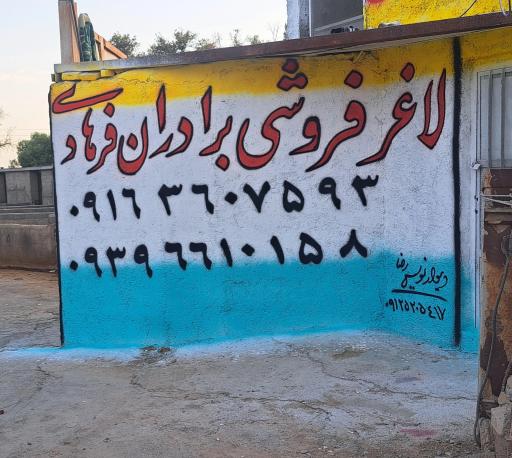 لاغر فروشی برادران فرهادی
۰۹۱۶ ۳۶۰۷۵۹۳
۰۹۳۹ ۶۶۱۰۱۵۸
دیوارنویسی رضا
۰۹۱۲۵۲۰۵۴۱۷